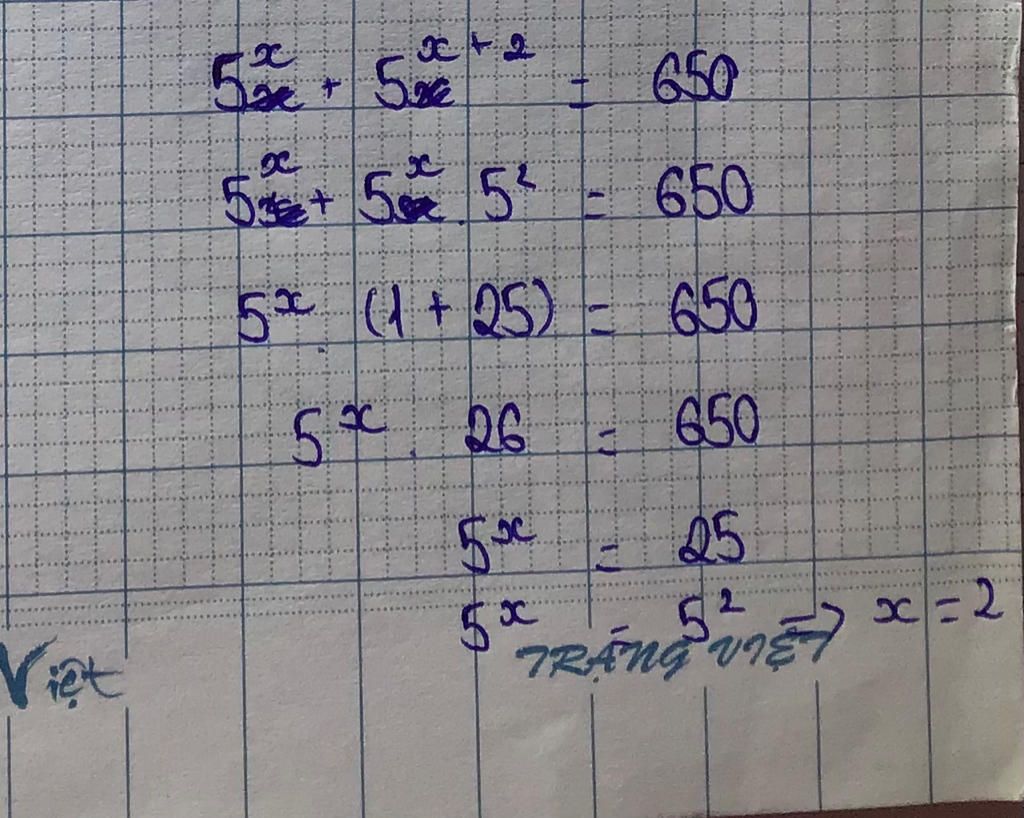 5^x + 5^{x+2} = 650
5^x + 5^x . 5² = 650
5^x . (1 + 25) = 650
5^x . 26 = 650
5^x = 25
5^x = 5² => x = 2
Việt TRẠNG VIỆT